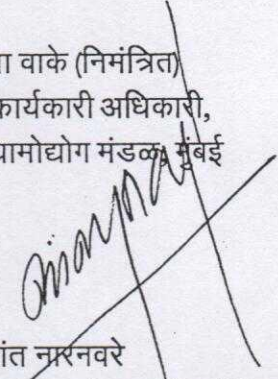 ा वाके (निमंत्रित)
कार्यकारी अधिकारी,
ामोद्योग मंडळ, मुंबई
ांत नारनवरे